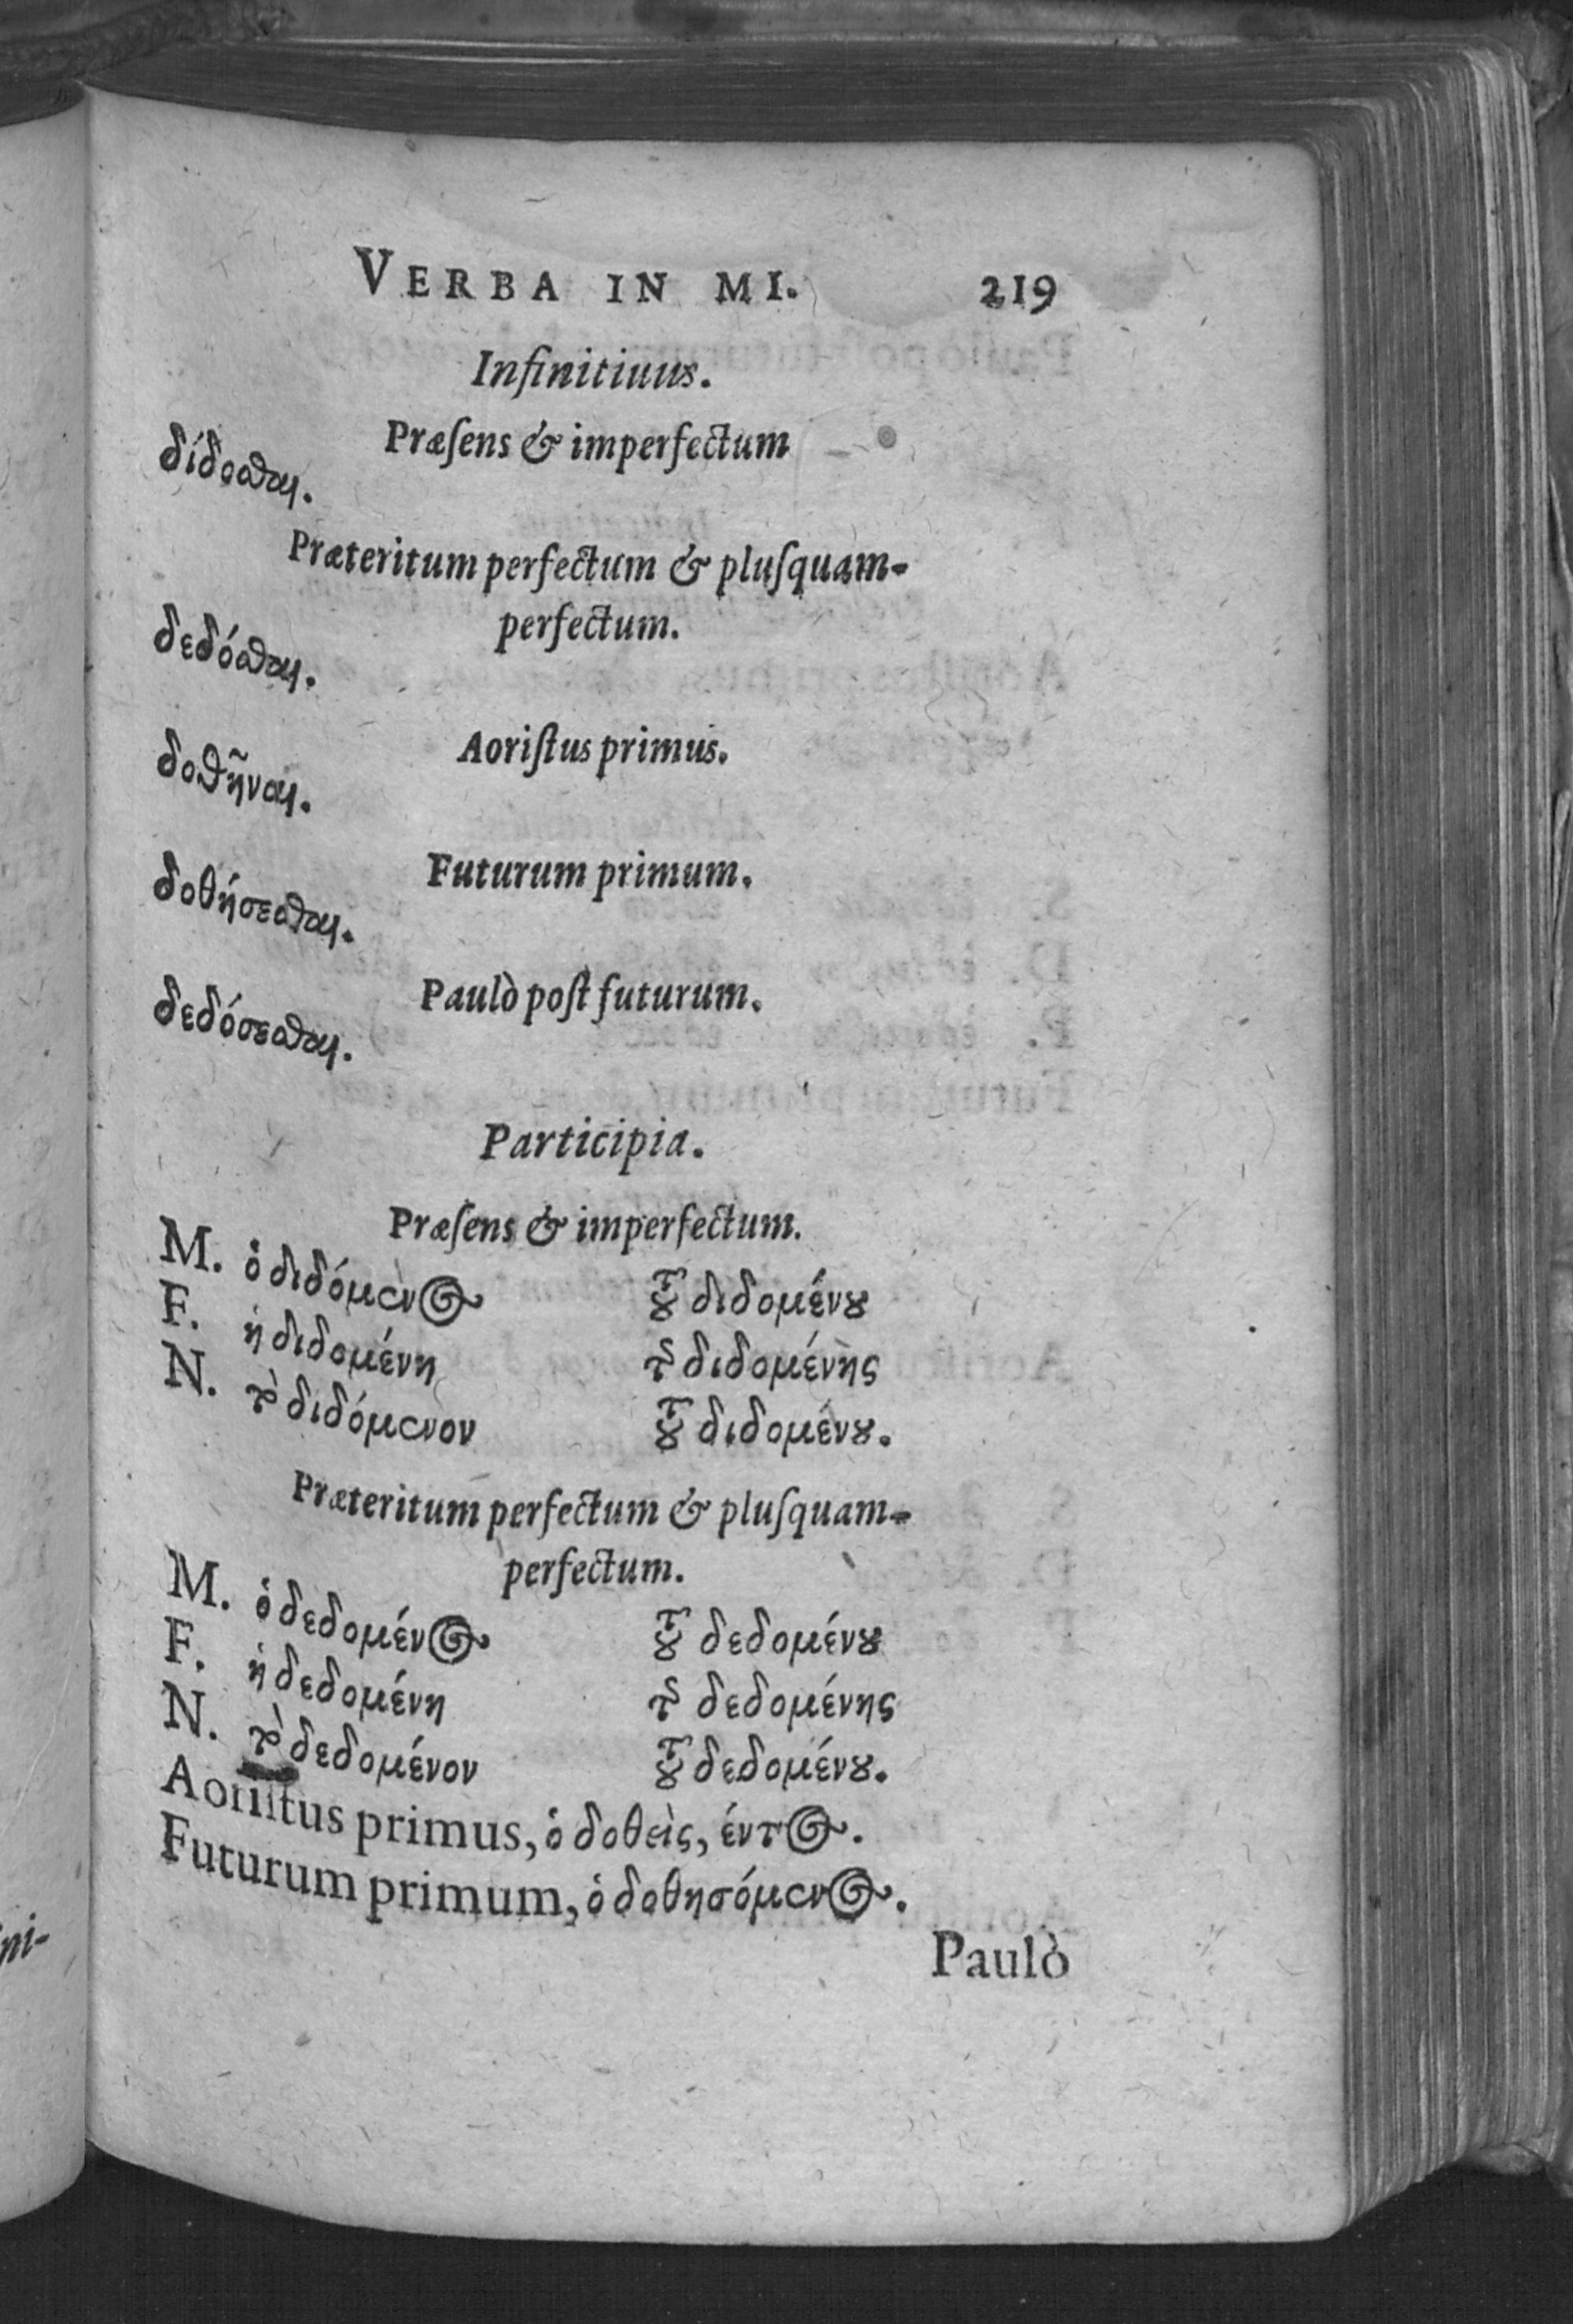 VERBA IN MI. 219
Infinitiuus.
Præſens & imperfectum
δίδοσθαι.
Præteritum perfectum & pluſquam-
perfectum.
δεδόσθαι.
Aoriſtus primus.
δοθῆναι.
Futurum primum.
δοθήσεσθαι.
Paulò poſt futurum.
δεδόσεσθαι.
Participia.
Præſens & imperfectum.
M. ὁ διδόμενος τοῦ διδομένου
F. ἡ διδομένη τῆς διδομένης
N. τὸ διδόμενον τοῦ διδομένου.
Præteritum perfectum & pluſquam-
perfectum.
M. ὁ δεδομένος τοῦ δεδομένου
F. ἡ δεδομένη τῆς δεδομένης
N. τὸ δεδομένον τοῦ δεδομένου.
Aoriſtus primus, ὁ δοθεὶς, έντος.
Futurum primum, ὁ δοθησόμενος.
Paulò